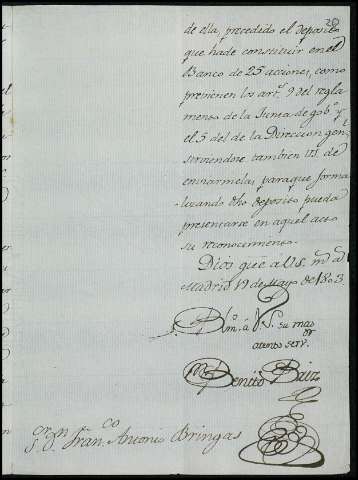 20
de ella, precedido el deposito
que ha de constituir en el
Banco de 25 acciones, como
previenen los art.s 9 del regla-
mento de la Junta de gob.no y
el 5 del de la Direccion gen.l
sirviendose tambien V.S. de
embiarmelas para que forma-
lizando dho deposito pueda
presentarse en aquel acto
su reconocimiento.
Dios gue a V.S. m.s a.s
Madrid 19 de Mayo de 1803.
B.l m.o a V.S. su mas
atento serv.or
Benito Baiz
S.or D.n Fran.co Antonio Bringas